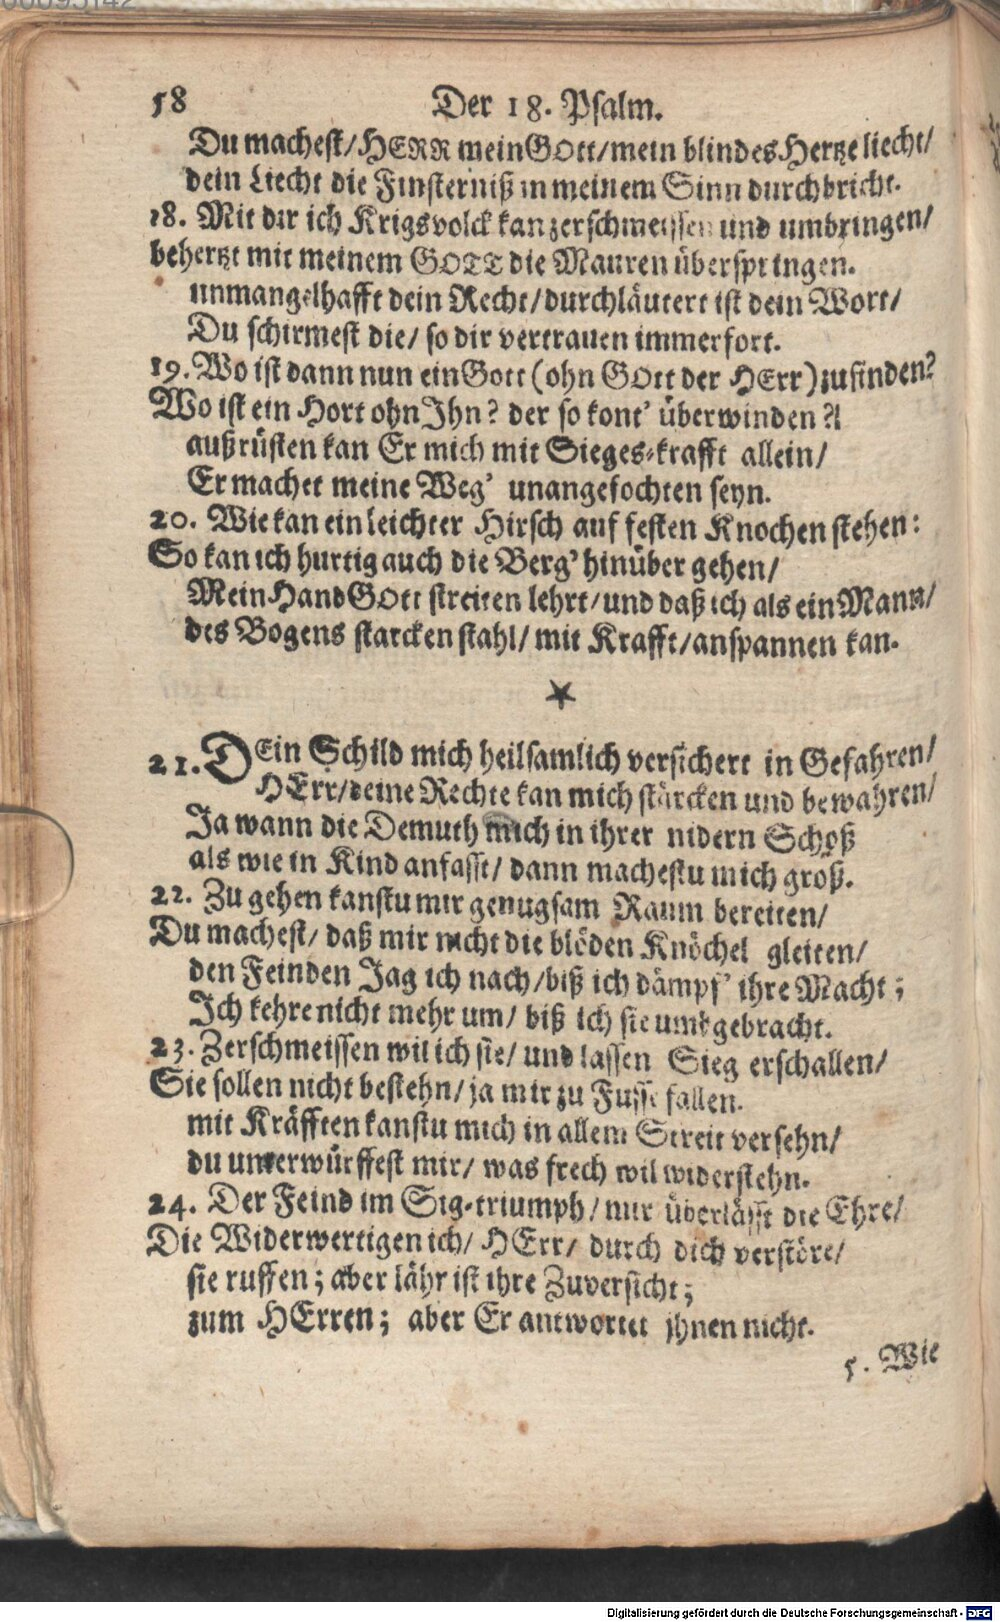 58 Der 18. Psalm.
Du machest/ HERR mein GOtt/ mein blindes Hertze liecht/
dein Liecht die Finsterniß in meinem Sinn durchbricht.
18. Mit dir ich Krigsvolck kan zerschmeissen und umbringen/
behertzt mit meinem GOTT die Mauren überspringen.
unmangelhafft dein Recht/ durchläutert ist dein Wort/
Du schirmest die/ so dir vertrauen immerfort.
19. Wo ist dann nun ein Gott (ohn GOtt der HErr) zu finden?
Wo ist ein Hort ohn Ihn? der so kont' überwinden?
außrüsten kan Er mich mit Sieges-krafft allein/
Er machet meine Weg' unangefochten seyn.
20. Wie kan ein leichter Hirsch auf festen Knochen stehen:
So kan ich hurtig auch die Berg' hinüber gehen/
Mein Hand GOtt streiten lehrt/ und daß ich als ein Mann/
des Bogens starcken stahl/ mit Krafft/ anspannen kan.
21. DEin Schild mich heilsamlich versichert in Gefahren/
HErr/ deine Rechte kan mich stärcken und bewahren/
Ja wann die Demuth mich in ihrer nidern Schoß
als wie in Kind anfasst/ dann machestu mich groß.
22. Zu gehen kanstu mir genugsam Raum bereiten/
Du machest/ daß mir nicht die blöden Knöchel gleiten/
den Feinden Jag ich nach/ biß ich dämpf' ihre Macht;
Ich kehre nicht mehr um/ biß ich sie umbgebracht.
23. Zerschmeissen wil ich sie/ und lassen Sieg erschallen/
Sie sollen nicht bestehn/ ja mir zu Fusse fallen.
mit Kräfften kanstu mich in allem Streit versehn/
du unterwürffest mir/ was frech wil widerstehn.
24. Der Feind im Sig-triumph/ mir überlässt die Ehre/
Die Widerwertigen ich/ HErr/ durch dich verstöre/
sie ruffen; aber lähr ist ihre Zuversicht;
zum HErren; aber Er antwortet ihnen nicht.
5. Wie
Digitalisierung gefördert durch die Deutsche Forschungsgemeinschaft - DFG